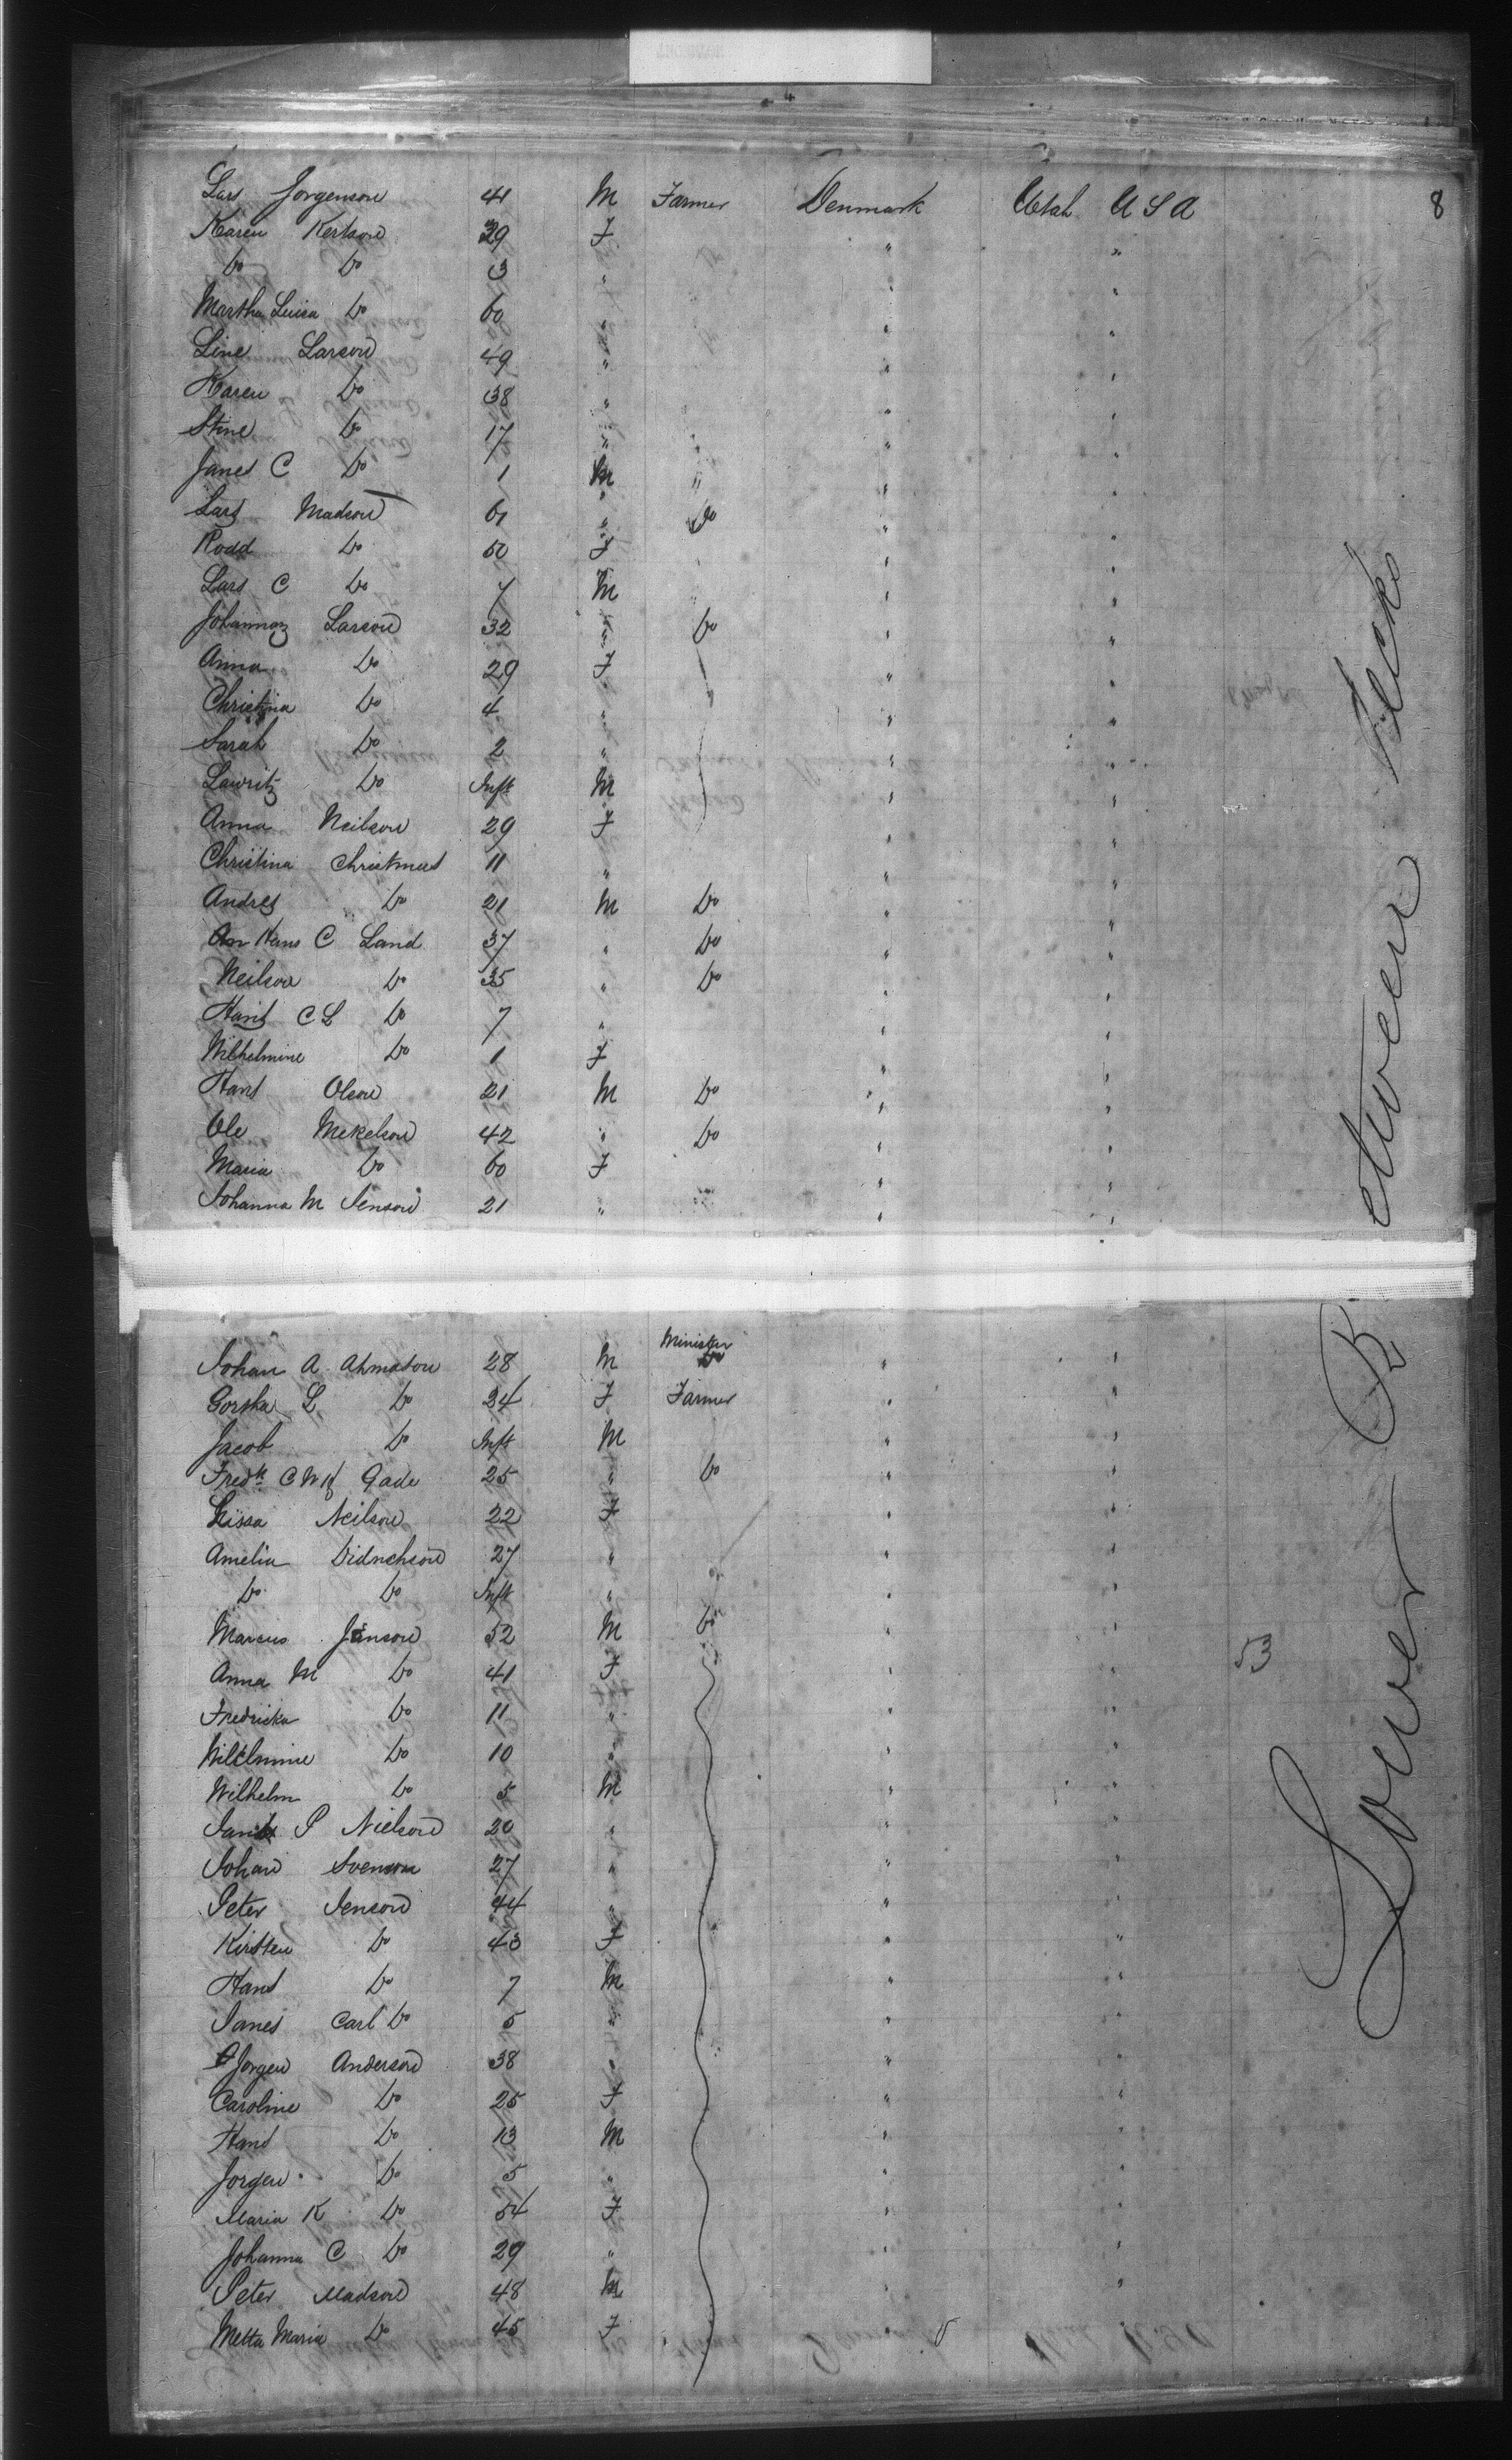 Lars Jorgenson 41 M Farmer Denmark Utah U S A 8
Karen Kertson 39 F " "
Do Do 3 " " "
Martha Luisa Do 60 " " "
Line Larson 49 " " "
Karen Do 38 " " "
Stine Do 17 " " "
James C Do 1 M " " "
Lars Madson 61 " Do " "
Rodd Do 50 F " "
Lars C Do 7 M " "
Johannaz Larson 32 " Do " "
Anna Do 29 F " "
Christina Do 4 " " "
Sarah Do 2 " " "
Lawritz Do Inft M " "
Anna Neilson 29 F " "
Christina Christmus 11 " " "
Andres Do 21 M Do " "
Hans C Land 37 " Do " "
Neilson Do 35 " Do " "
Hans C L Do 7 " " "
Wilhelmine Do 1 F " "
Hans Olson 21 M Do " "
Ole Mekelson 42 " Do " "
Maria Do 60 F " "
Johanna M Jenson 21 " " "
Johan A Ahmason 28 M Minister " "
L Do 24 F Farmer " "
Jacob Do Inft M " "
Fredk C W Gade 25 " Do " "
Lissa Neilson 22 F " "
Amelia Didrichson 27 " " "
Do Do Inft " " "
Marcus Janson 52 M Do " " 53
Anna M Do 41 F " "
Fredricka Do 11 " " "
Wilelmine Do 10 " " "
Wilhelm Do 5 M " "
P Nielson 20 " " "
Johan Svenson 27 " " "
Peter Jenson 44 " " "
Kirsten Do 43 F " "
Hans Do 7 M " "
James Carl Do 5 " " "
Jorgen Anderson 38 " " "
Caroline Do 25 F " "
Hans Do 13 M " "
Jorgen Do 5 " " "
Maria K Do 54 F " "
Johanna C Do 29 " " "
Peter Madson 48 M " "
Metta Maria Do 45 F "
Lower Between Decks